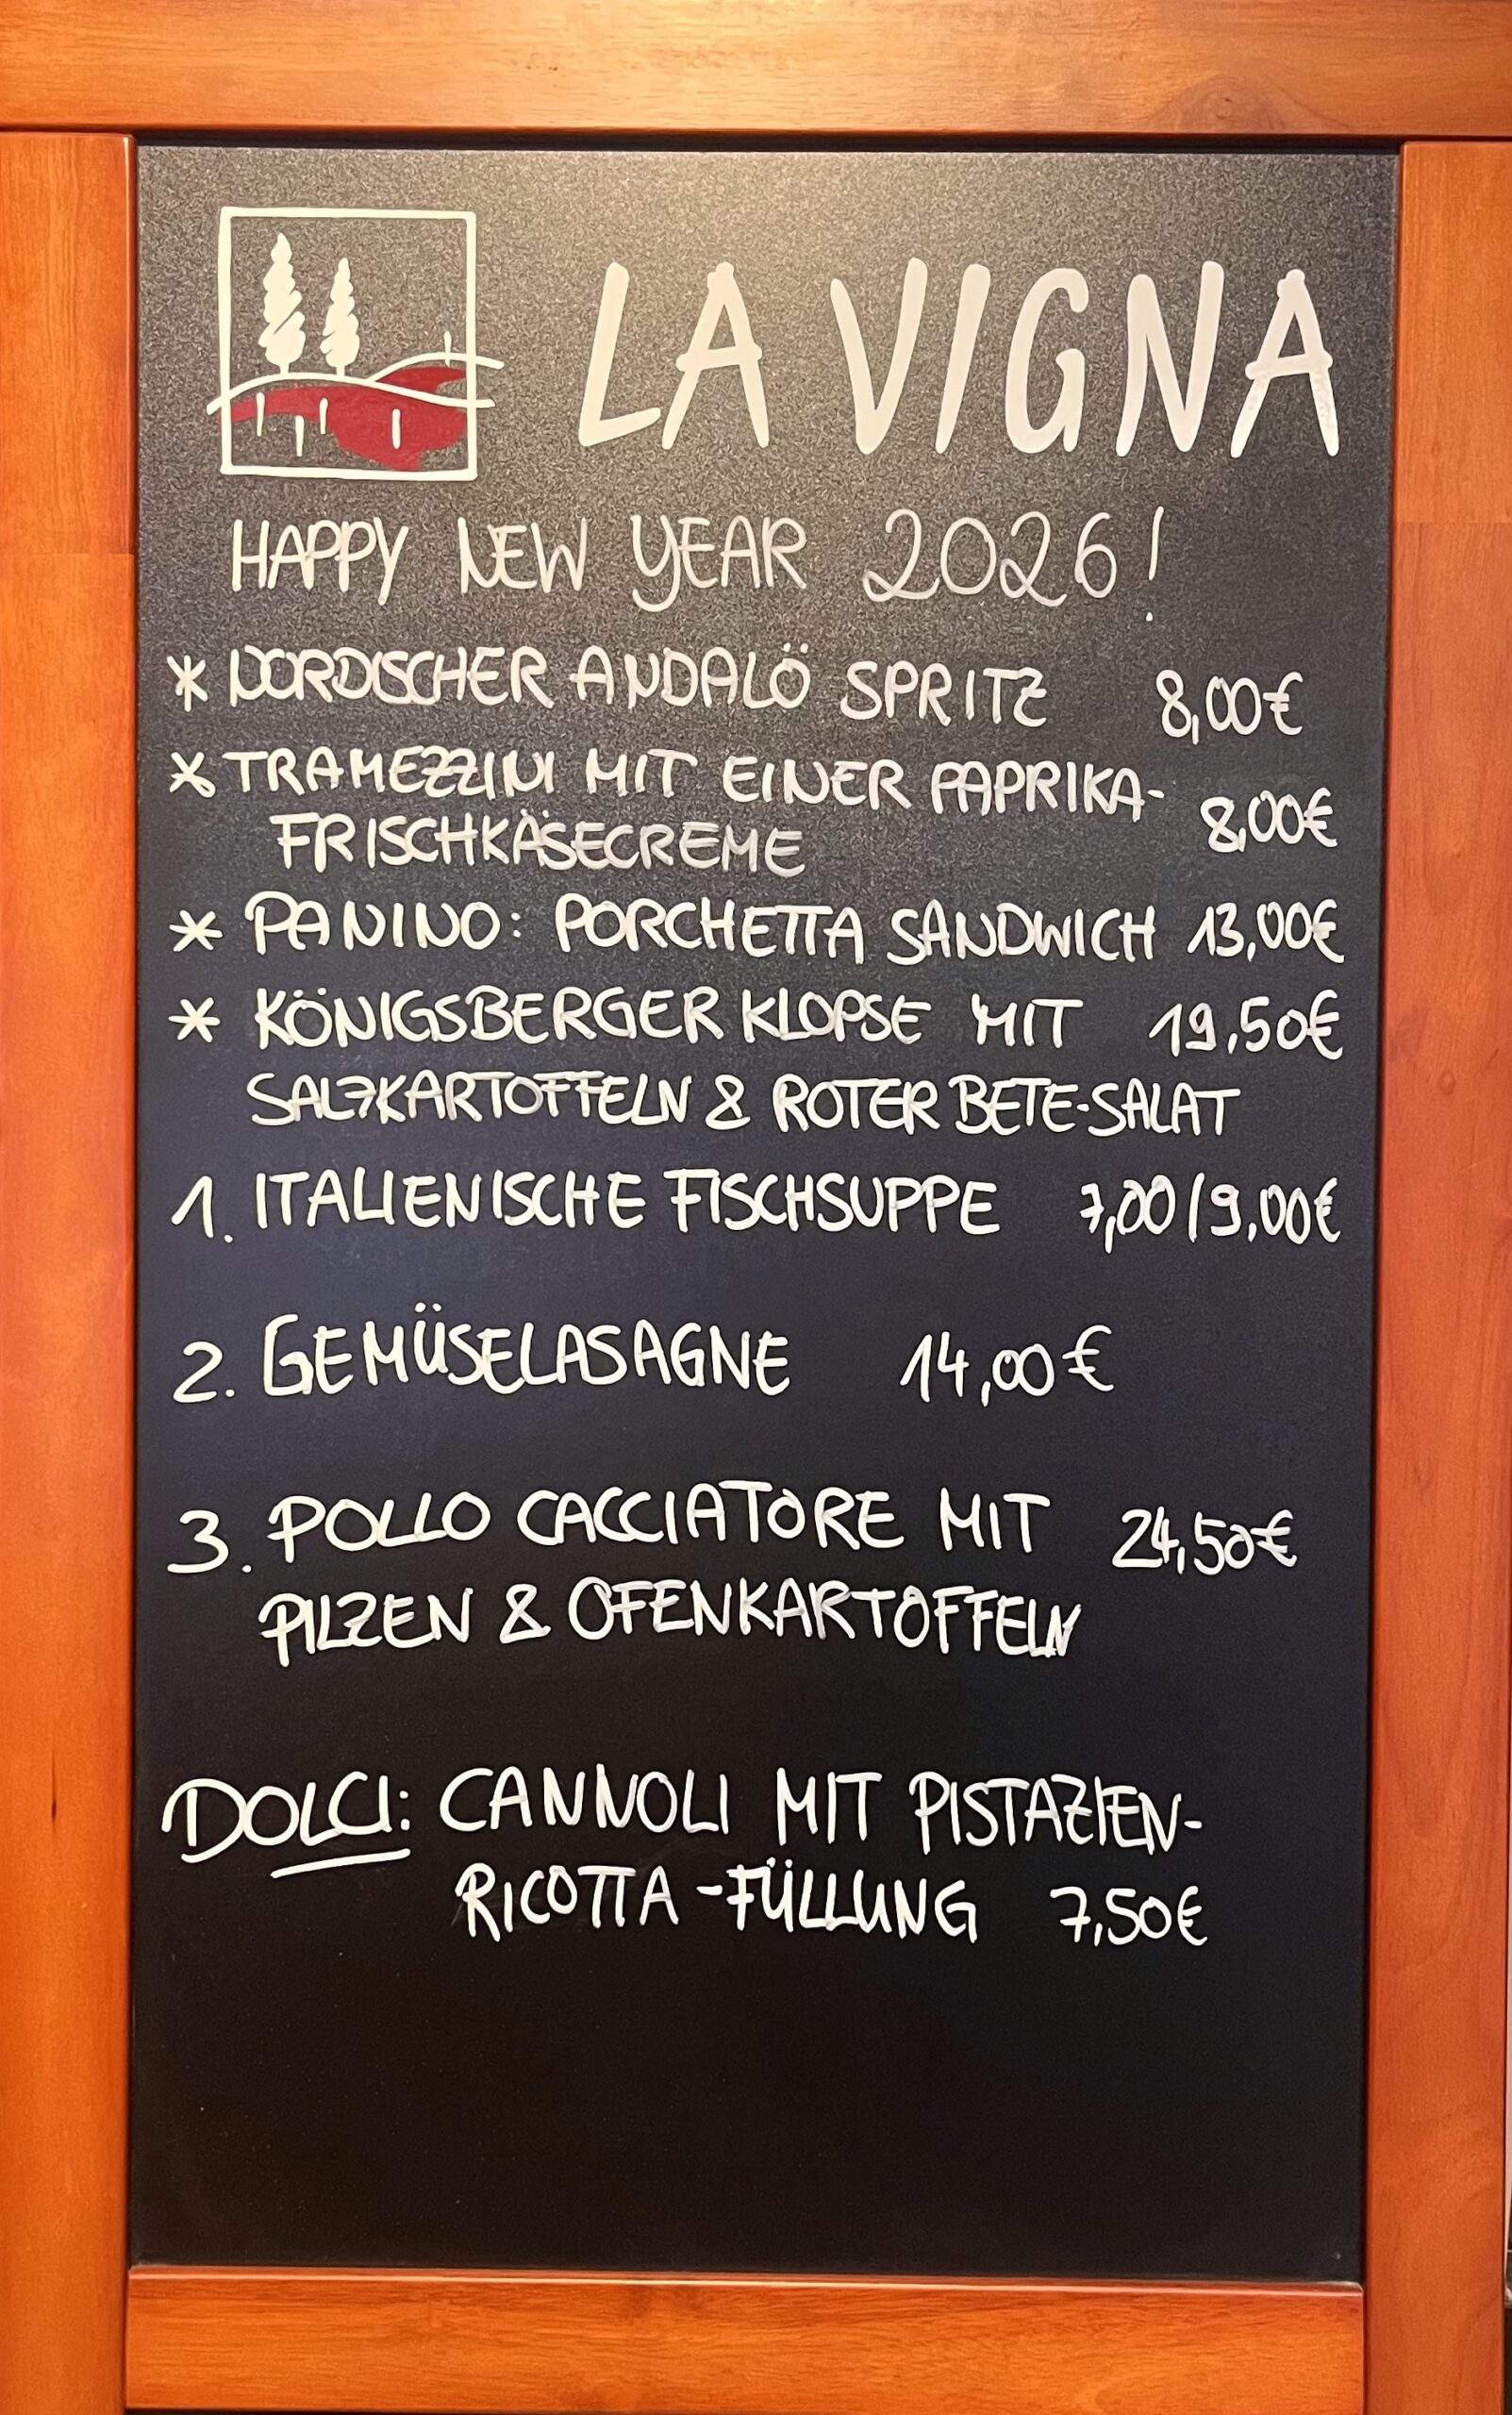 LA VIGNA
HAPPY NEW YEAR 2026!
* NORDISCHER ANDALÖ SPRITZ 8,00€
* TRAMEZZINI MIT EINER PAPRIKA- 8,00€
FRISCHKÄSECREME
* PANINO: PORCHETTA SANDWICH 13,00€
* KÖNIGSBERGER KLOPSE MIT 19,50€
SALZKARTOFFELN & ROTER BETE-SALAT
1. ITALIENISCHE FISCHSUPPE 7,00/9,00€
2. GEMÜSELASAGNE 14,00€
3. POLLO CACCIATORE MIT 24,50€
PILZEN & OFENKARTOFFELN
DOLCI: CANNOLI MIT PISTAZIEN-
RICOTTA-FÜLLUNG 7,50€